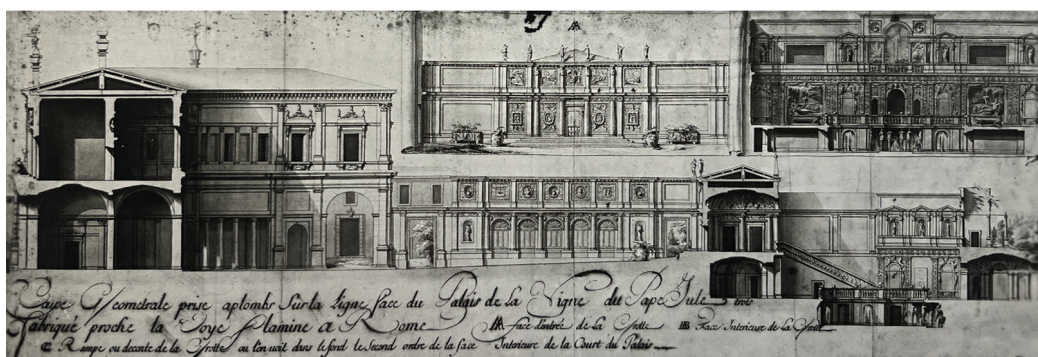 AA
Coupe Geometrale prise aplombs Sur la Ligne face du Palais de La Vigne du Pape Jule trois
fabriqué proche la Voye flamine a Rome AA face d'entrée de La Grotte BB Face Interieure de La Grotte
C Rampe ou decente de la Grotte ou l'on voit dans le fond le Second ordre de la face Interieure de la Court du Palais